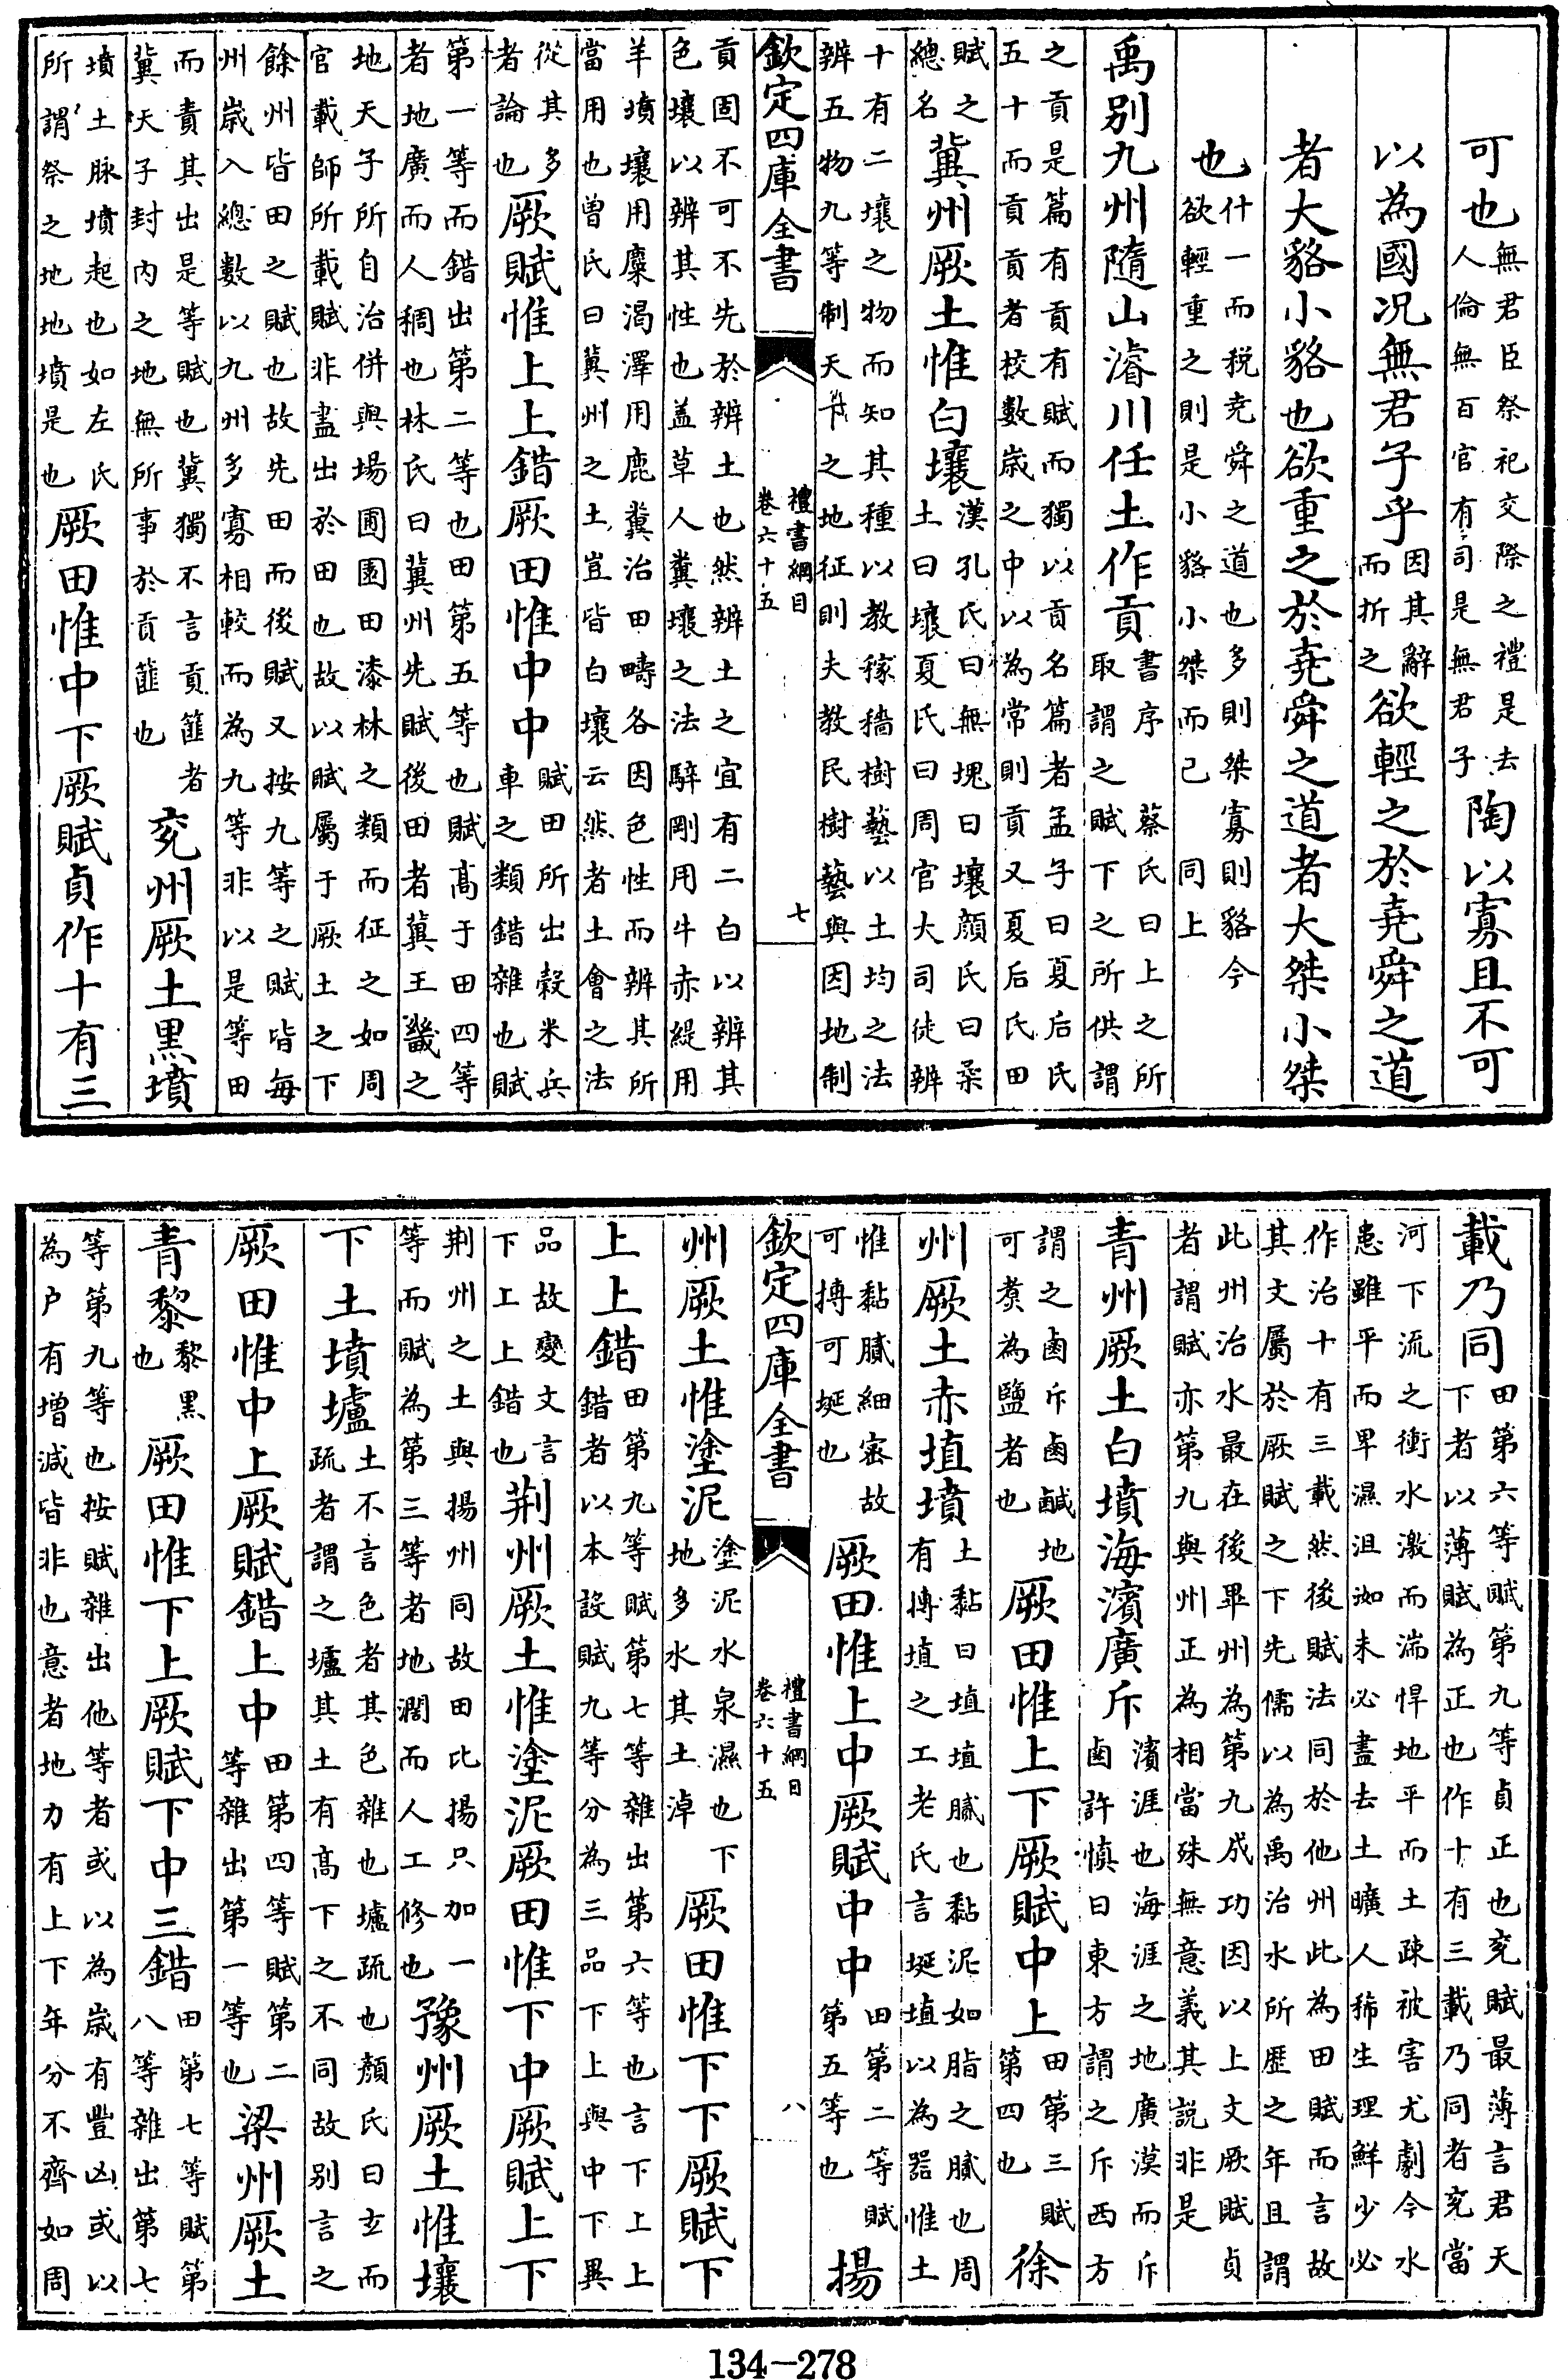 可也無君臣祭祀交際之禮是去人倫無百官有司是無君子陶以寡且不可
以為國况無君子乎因其辭而折之欲輕之於堯舜之道
者大貉小貉也欲重之於堯舜之道者大桀小桀
也什一而税堯舜之道也多則桀寡則貉今欲輕重之則是小貉小桀而已同上
禹别九州隨山濬川任土作貢書序蔡氏曰上之所取謂之賦下之所供謂
之貢是篇有貢有賦而獨以貢名篇者孟子曰夏后氏五十而貢貢者校數歲之中以為常則貢又夏后氏田
賦之總名冀州厥土惟白壤漢孔氏曰無塊曰壤顔氏曰柔土曰壤夏氏曰周官大司徒辨
十有二壤之物而知其種以教稼穡樹藝以土均之法辨五物九等制天下之地征則夫教民樹藝與因地制
欽定四庫全書
禮書綱目
卷六十五
七
貢固不可不先於辨土也然辨土之宜有二白以辨其色壤以辨其性也盖草人糞壤之法騂剛用牛赤緹用
羊墳壤用麋渴澤用鹿糞治田疇各因色性而辨其所當用也曾氏曰冀州之土豈皆白壤云然者土會之法
從其多者論也厥賦惟上上錯厥田惟中中賦田所出榖米兵車之類錯雜也賦
第一等而錯出第二等也田第五等也賦髙于田四等者地廣而人稠也林氏曰冀州先賦後田者冀王畿之
地天子所自治併與場圃園田漆林之類而征之如周官載師所載賦非盡出於田也故以賦屬于厥土之下
餘州皆田之賦也故先田而後賦又按九等之賦皆每州歲入總數以九州多寡相較而為九等非以是等田
而責其出是等賦也冀獨不言貢篚者冀天子封内之地無所事於貢篚也兖州厥土黒墳
墳土脉墳起也如左氏所謂祭之地地墳是也厥田惟中下厥賦貞作十有三
載乃同田第六等賦第九等貞正也兖賦最薄言君天下者以薄賦為正也作十有三載乃同者兖當
河下流之衝水激而湍悍地平而土疎被害尤劇今水患雖平而卑濕沮洳未必盡去土曠人稀生理鮮少必
作治十有三載然後賦法同於他州此為田賦而言故其文屬於厥賦之下先儒以為禹治水所歷之年且謂
此州治水最在後畢州為第九成功因以上文厥賦貞者謂賦亦第九與州正為相當殊無意義其説非是
青州厥土白墳海濱廣斥濱涯也海涯之地廣漠而斥鹵許慎曰東方謂之斥西方
謂之鹵斥鹵鹹地可煑為鹽者也厥田惟上下厥賦中上田第三賦第四也徐
州厥土赤埴墳土黏曰埴埴膩也黏泥如脂之膩也周有摶埴之工老氏言埏埴以為器惟土
惟黏膩細宻故可摶可埏也厥田惟上中厥賦中中田第二等賦第五等也揚
欽定四庫全書
禮書綱目
卷六十五
八
州厥土惟塗泥塗泥水泉濕也下地多水其土淖厥田惟下下厥賦下
上上錯田第九等賦第七等雜出第六等也言下上上錯者以本設賦九等分為三品下上與中下異
品故變文言下上上錯也荆州厥土惟塗泥厥田惟下中厥賦上下
荆州之土與揚州同故田比揚只加一等而賦為第三等者地濶而人工修也豫州厥土惟壤
下土墳壚土不言色者其色雜也壚疏也顔氏曰玄而疏者謂之壚其土有高下之不同故别言之
厥田惟中上厥賦錯上中田第四等賦第二等雜出第一等也梁州厥土
青黎黎黒也厥田惟下上厥賦下中三錯田第七等賦第八等雜出第七
等第九等也按賦雜出他等者或以為歲有豐凶或以為户有增減皆非也意者地力有上下年分不齊如周
134-278